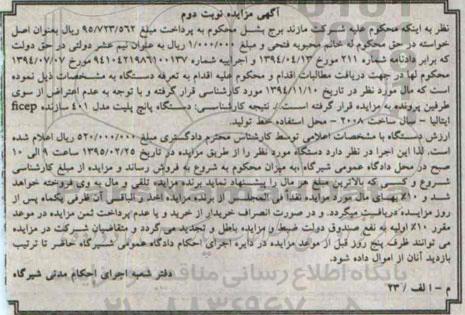 آگهی مزایده نوبت دوم
نظر به اینکه محکوم علیه شرکت مازند برج بشل محکوم به پرداخت مبلغ ۹۵/۷۲۳/۵۶۲ ریال بعنوان اصل
خواسته در حق محکوم له خانم محبوبه فتحی و مبلغ ۱/۰۰۰/۰۰۰ ریال به عنوان نیم عشر دولتی در حق دولت
که برابر دادنامه شماره ۲۱۱ مورخ ۱۳۹۴/۰۴/۱۳ و اجراییه شماره ۹۴۱۰۴۲۱۹۸۶۱۰۰۱۳۷ مورخ ۱۳۹۴/۰۷/۰۷
محکوم لها در جهت دریافت مطالبات اقدام و محکوم علیه اقدام به تعرفه دستگاه به مشخصات ذیل نموده
است که مال مورد نظر در تاریخ ۱۳۹۴/۱۱/۱۰ مورد کارشناسی قرار گرفته و با توجه به عدم اعتراض از سوی
طرفین پرونده به مزایده قرار گرفته است. نتیجه کارشناسی: دستگاه پانچ پلیت مدل ۴۰۱ سازنده ficep
ایتالیا – سال ساخت ۲۰۰۸ - محل استفاده خط تولید.
ارزش دستگاه با مشخصات اعلامی توسط کارشناس محترم دادگستری مبلغ ۵۲۰/۰۰۰/۰۰۰ ریال اعلام شده
است. لذا این اجرا در نظر دارد دستگاه مورد نظر را از طریق مزایده در تاریخ ۱۳۹۵/۰۲/۲۵ ساعت ۹ الی ۱۰
صبح در محل دادگاه عمومی شیرگاه ،به میزان محکوم به شروع به فروش رساند و مزایده از مبلغ کارشناسی
شروع و کسی که بالاترین مبلغ هر مال را پیشنهاد نماید برنده مزایده تلقی و مال به وی فروخته خواهد
شد و ۱۰٪ بهای مال مورد مزایده نقداً فی المجلس از برنده مزایده اخذ و الباقی آن ظرفی یکماه پس از
روز مزایده دریافت میگردد. و در صورت انصراف خریدار از خرید و یا عدم پرداخت ثمن مزایده در موعد
مقرر ۱۰٪ اولیه به نفع صندوق دولت ضبط و مزایده باطل و تجدید می گردد و متقاضیان شرکت در مزایده
می توانند ظرف پنج روز قبل از موعد مزایده در دایره اجرای احکام دادگاه عمومی شیرگاه حاضر تا ترتیب
بازدید آنان از اموال داده شود.
دفتر شعبه اجرای احکام مدنی شیرگاه
م – الف / ۲۳